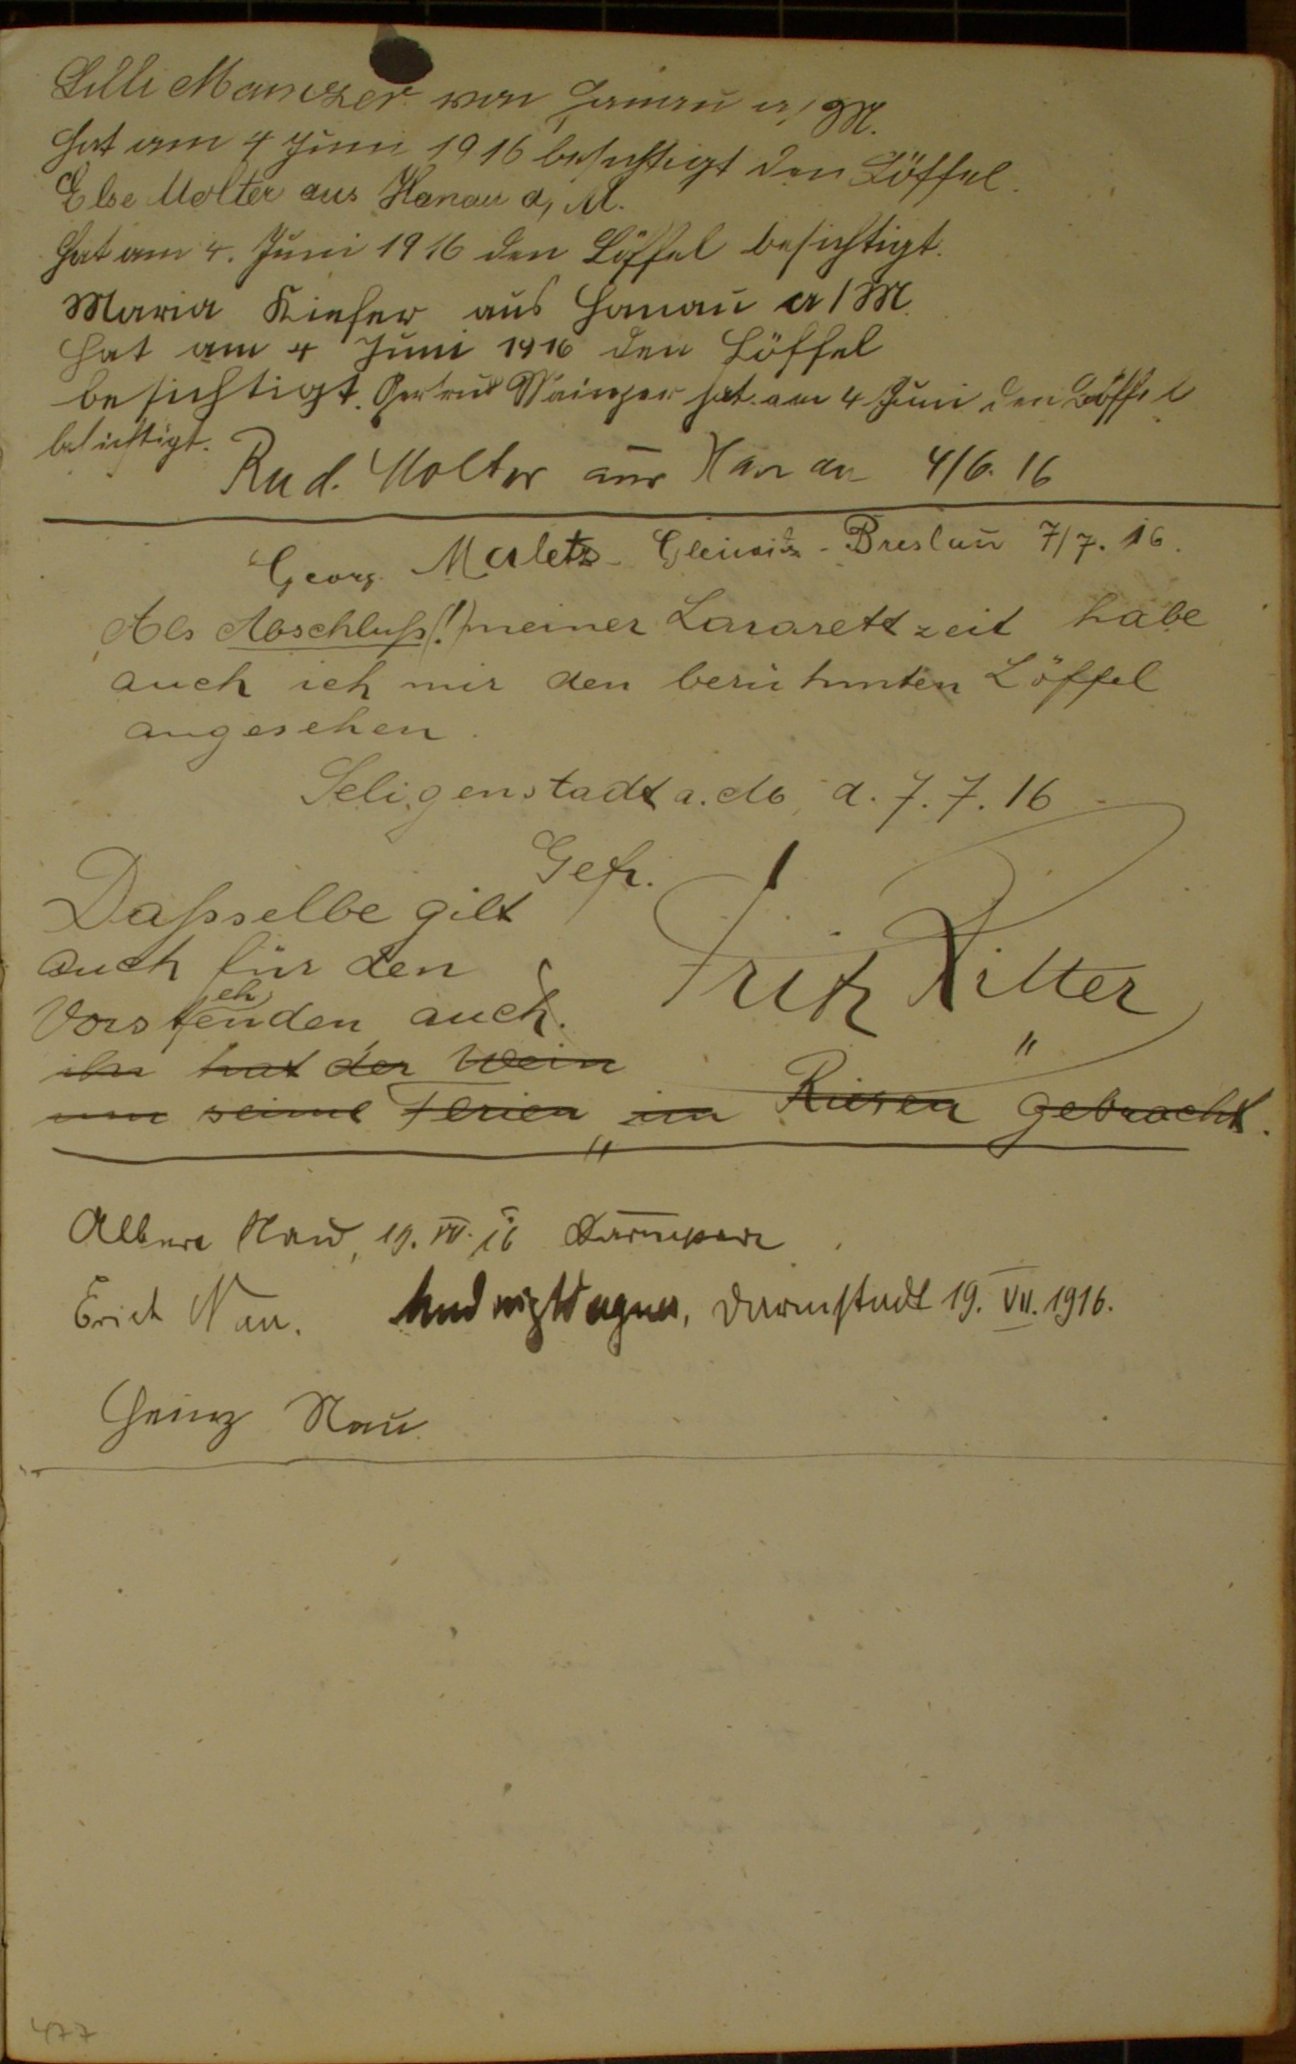 Lilli Mainzer von Hanau a/M.
hat am 4 Juni 1916 besichtigt den Löffel.
Else Molter aus Hanau a, M.
hat am 4. Juni 1916 den Löffel besichtigt.
Maria Kiefer aus Hanau a/M.
hat am 4 Juni 1916 den Löffel
besichtigt. Gertrud Mainzer hat am 4 Juni den Löffel
besichtigt.
Rud. Molter aus Hanau 4/6. 16
Georg Maletz - Gleiwitz - Breslau 7/7. 16.
Als Abschluß(!) meiner Lazarettzeit habe
auch ich mir den berühmten Löffel
angesehen.
Seligenstadt a. M. d. 7. 7. 16
Gefr.
Fritz Ritter
Daßselbe gilt
auch für den
Vorstehenden auch.
ihn hat der Wein
um seine Ferien im Riesen gebracht.
Albert Nau, 19. VII. 16
Erich Nau. Ludwig Wagner, Darmstadt 19. VII. 1916.
Heinz Nau
477